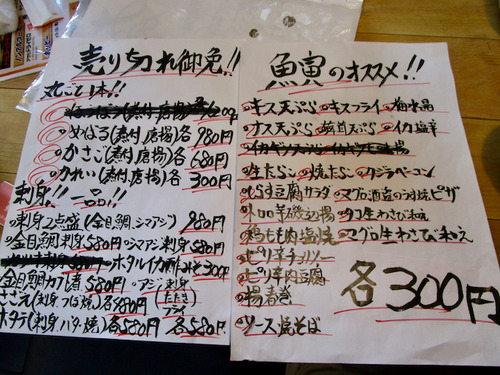 売り切れ御免!!
丸ごと1本!!
めばる(煮付 唐揚)各 980円
かさご(煮付 唐揚)各 680円
かれい(煮付 唐揚)各 300円
刺身!! 一品!!
刺身2点盛(金目鯛、シマアジ) 980円
金目鯛刺身580円 シマアジ刺身580円
ホタルイカ酢みそ300円
金目鯛カブト煮580円
アジ 刺身 たたき フライ
さざえ(刺身 つぼ焼)各580円
ホタテ(刺身 バター焼)各580円 各580円
魚寅のオススメ!!
キス天ぷら キスフライ 梅水晶
ナス天ぷら 天ぷら イカ塩辛
生たらこ 焼たらこ クジラベーコン
しらす豆腐サラダ マグロ酒盗のうす焼ピザ
トロロ芋磯辺揚 タコ生わさび和え
鶏もも肉塩焼 マグロ生わさび和え
ピリ辛チョリソー
ピリ辛肉豆腐
揚春巻
ソース焼そば
各300円